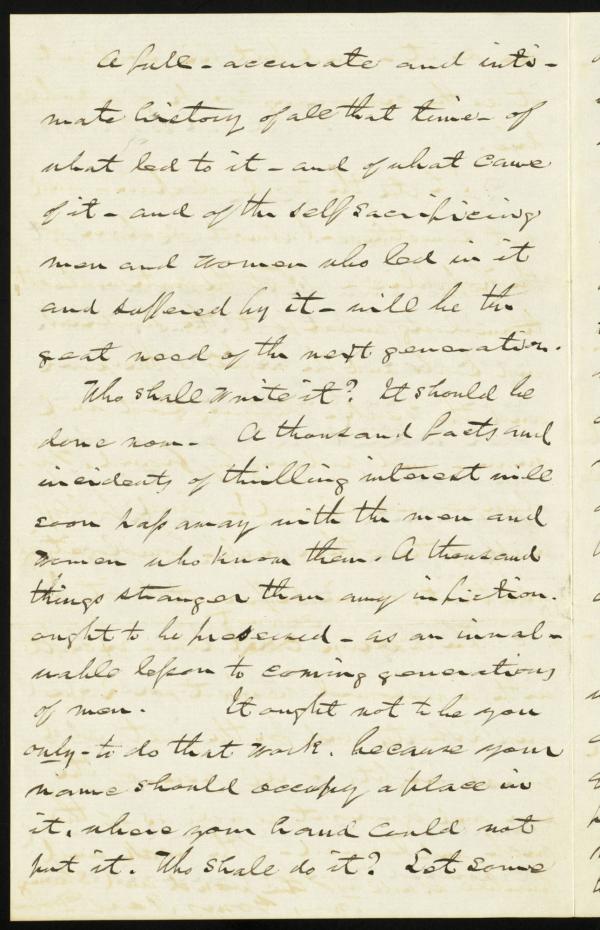 A full - accurate and inti-
mate history of all that time - of
what led to it - and of what came
of it - and of the self sacrificing
men and women who led in it
and suffered by it - will be the
great need of the next generation.
Who shall write it? It should be
done now - A thousand facts and
incidents of thrilling interest will
soon pass away with the men and
women who know them. A thousand
things stranger than any in fiction.
ought to be preserved - as an inval-
uable lesson to coming generations
of men. It ought not to be you
only - to do that work. because your
name should occupy a place in
it. where your hand could not
put it. Who shall do it? Let some